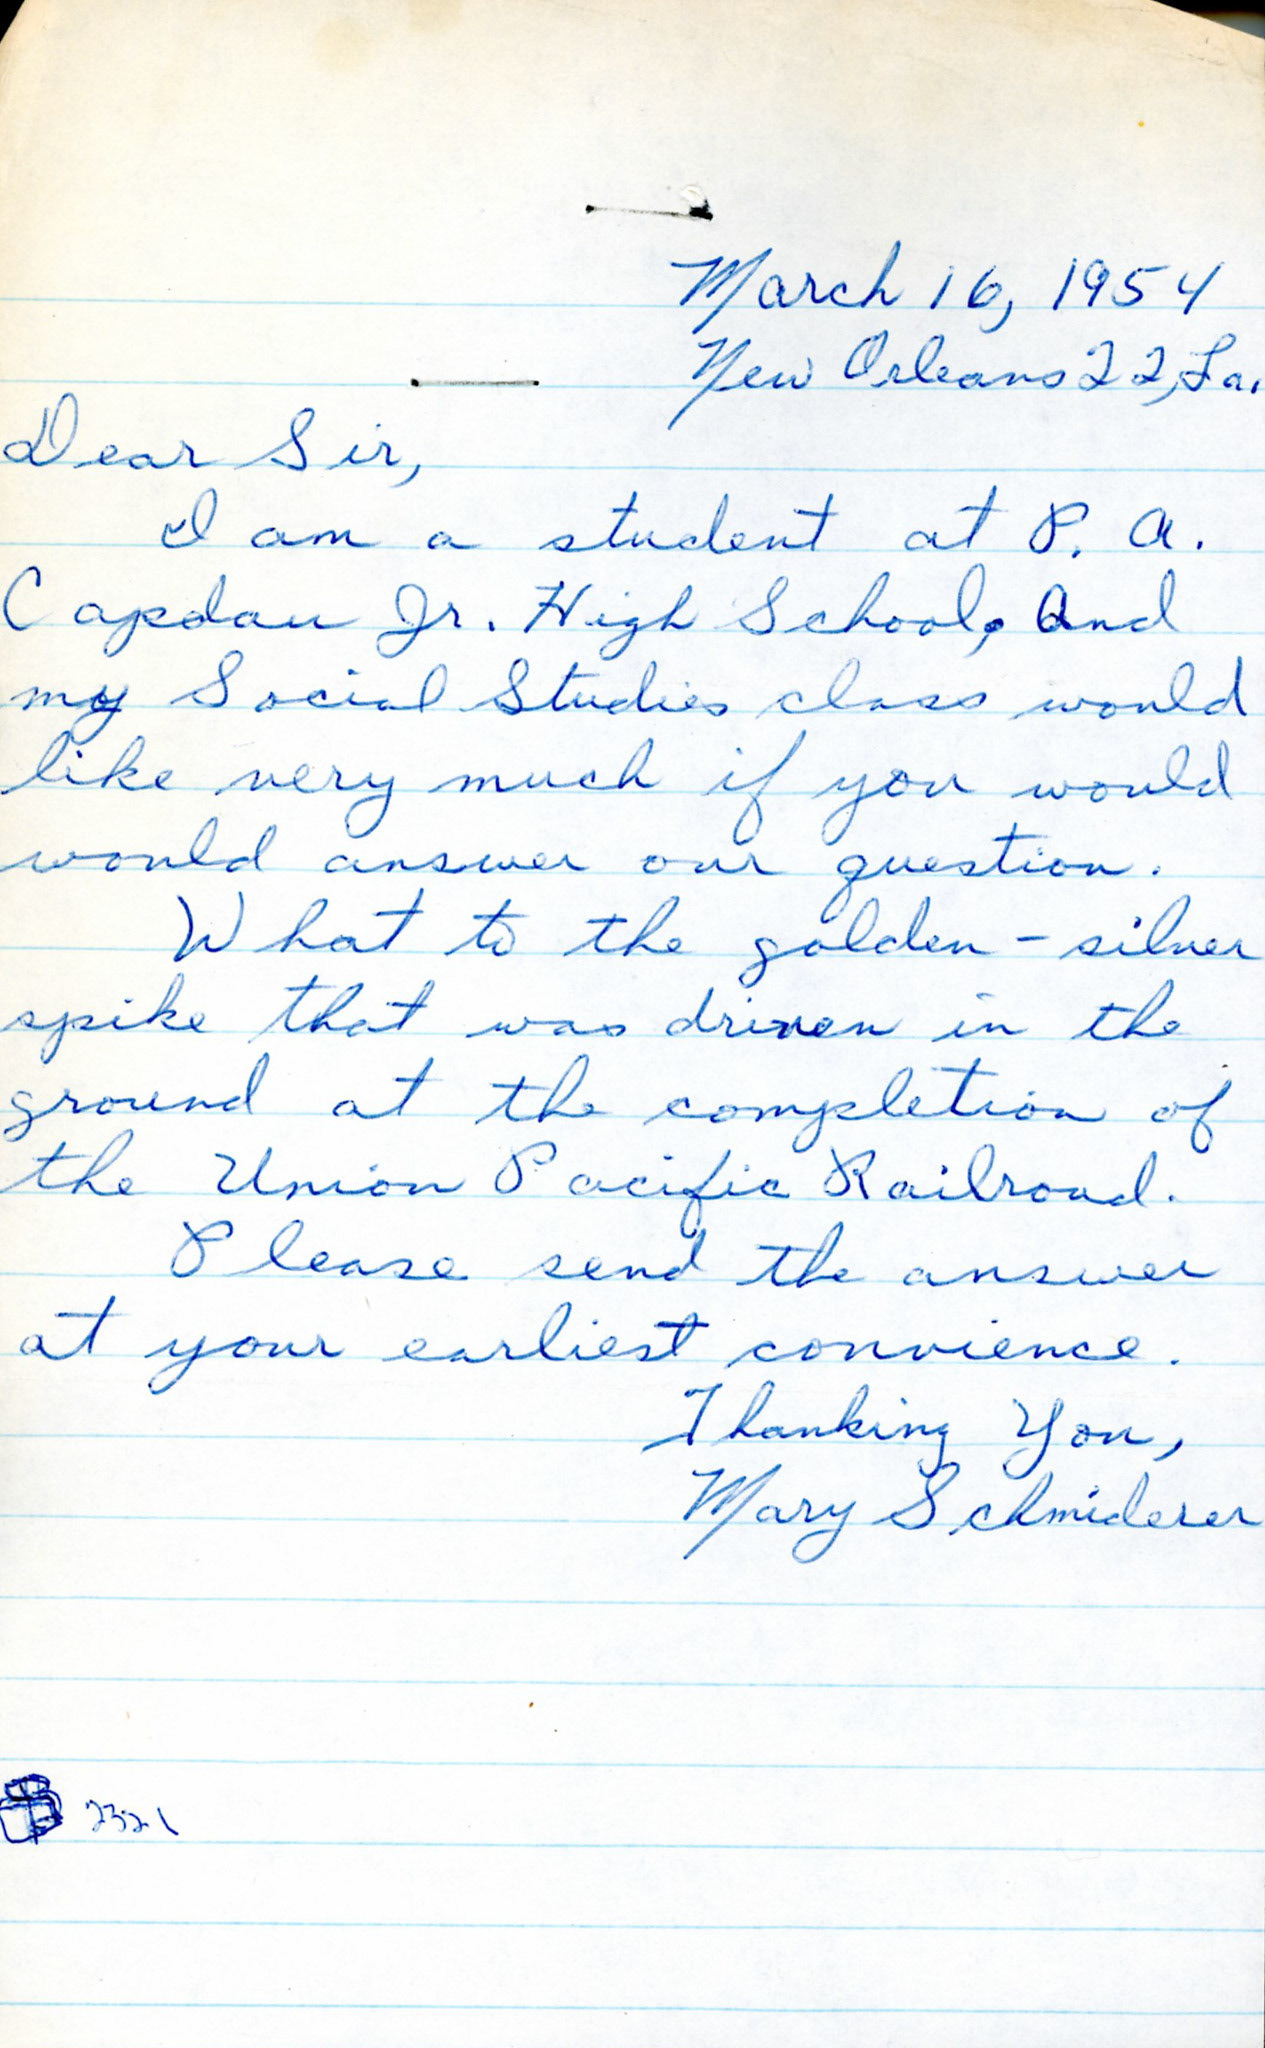 March 16, 1954
New Orleans 22, La.
Dear Sir,
I am a student at P. A.
Capdau Jr. High School, And
my Social Studies class would
like very much if you would
would answer our question.
What to the golden - silver
spike that was driven in the
ground at the completion of
the Union Pacific Railroad.
Please send the answer
at your earliest convience.
Thanking You,
Mary Schmiderer
2321